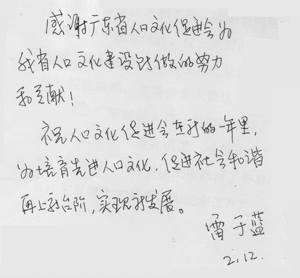 感谢广东省人口文化促进会为
我省人口文化建设所做的努力
和贡献！
祝人口文化促进会在新的一年里，
为培育先进人口文化，促进社会和谐
再上新台阶，实现新发展。
雷于蓝
2.12.